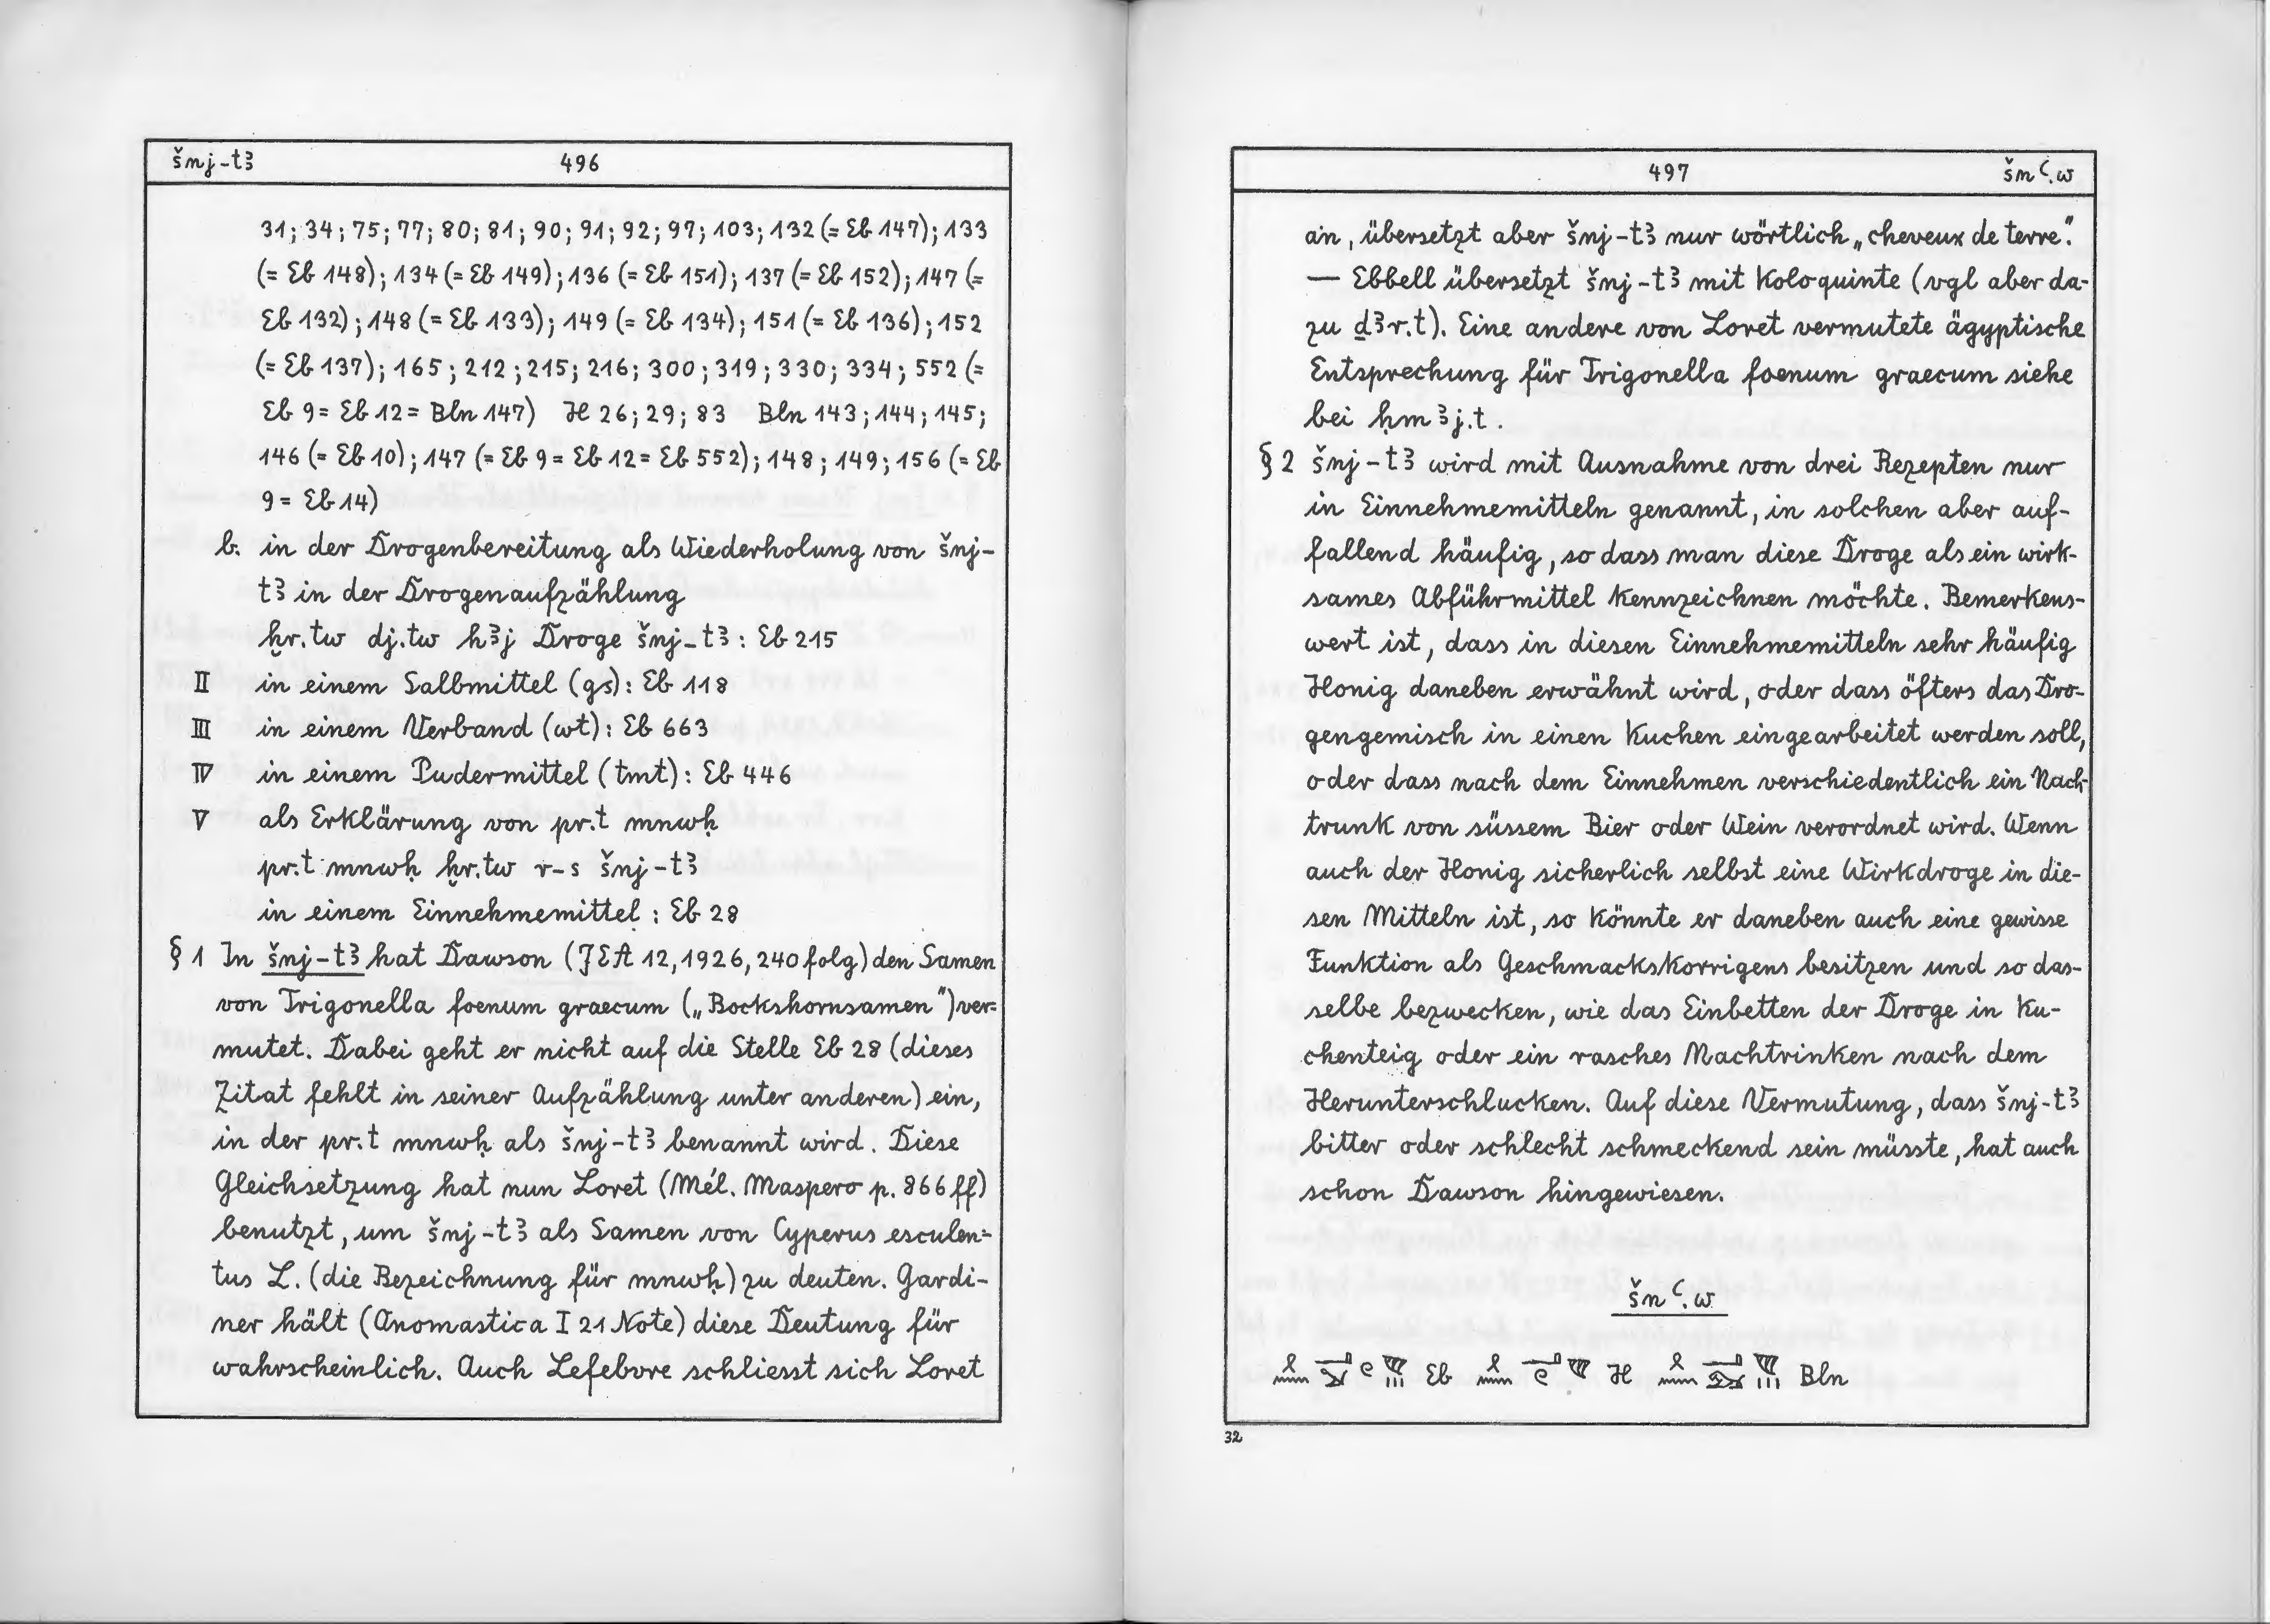 šnj-tꜣ 496
31; 34; 75; 77; 80; 81; 90; 91; 92; 97; 103; 132 (= Eb 147); 133
(= Eb 148); 134 (= Eb 149); 136 (= Eb 151); 137 (= Eb 152); 147 (=
Eb 132); 148 (= Eb 133); 149 (= Eb 134); 151 (= Eb 136); 152
(= Eb 137); 165; 212; 215; 216; 300; 319; 330; 334; 552 (=
Eb 9 = Eb 12 = Bln 147) H 26; 29; 83 Bln 143; 144; 145;
146 (= Eb 10); 147 (= Eb 9 = Eb 12 = Eb 552); 148; 149; 156 (= Eb
9 = Eb 14)
b. in der Drogenbereitung als Wiederholung von šnj-
tꜣ in der Drogenaufzählung
ḫr.tw dj.tw hꜣj Droge šnj-tꜣ: Eb 215
II in einem Salbmittel (gs): Eb 118
III in einem Verband (wt): Eb 663
IV in einem Pudermittel (tmt): Eb 446
V als Erklärung von pr.t mnwḥ
pr.t mnwḥ ḫr.tw r-s šnj-tꜣ
in einem Einnehmemittel: Eb 28
§ 1 In šnj-tꜣ hat Dawson (JEA 12, 1926, 240 folg) den Samen
von Trigonella foenum graecum („Bockshornsamen") ver-
mutet. Dabei geht er nicht auf die Stelle Eb 28 (dieses
Zitat fehlt in seiner Aufzählung unter anderen) ein,
in der pr.t mnwḥ als šnj-tꜣ benannt wird. Diese
Gleichsetzung hat nun Loret (Mél. Maspero p. 866 ff)
benutzt, um šnj-tꜣ als Samen von Cyperus esculen-
tus L. (die Bezeichnung für mnwḥ) zu deuten. Gardi-
ner hält (Onomastica I 21 Note) diese Deutung für
wahrscheinlich. Auch Lefebvre schliesst sich Loret
497 šnꜥ.w
an, übersetzt aber šnj-tꜣ nur wörtlich „cheveux de terre".
— Ebbell übersetzt šnj-tꜣ mit Koloquinte (vgl aber da-
zu ḏꜣr.t). Eine andere von Loret vermutete ägyptische
Entsprechung für Trigonella foenum graecum siehe
bei ḥmꜣj.t.
§ 2 šnj-tꜣ wird mit Ausnahme von drei Rezepten nur
in Einnehmemitteln genannt, in solchen aber auf-
fallend häufig, so dass man diese Droge als ein wirk-
sames Abführmittel kennzeichnen möchte. Bemerkens-
wert ist, dass in diesen Einnehmemitteln sehr häufig
Honig daneben erwähnt wird, oder dass öfters das Dro-
gengemisch in einen Kuchen eingearbeitet werden soll,
oder dass nach dem Einnehmen verschiedentlich ein Nach-
trunk von süssem Bier oder Wein verordnet wird. Wenn
auch der Honig sicherlich selbst eine Wirkdroge in die-
sen Mitteln ist, so könnte er daneben auch eine gewisse
Funktion als Geschmackskorrigens besitzen und so das-
selbe bezwecken, wie das Einbetten der Droge in Ku-
chenteig oder ein rasches Nachtrinken nach dem
Herunterschlucken. Auf diese Vermutung, dass šnj-tꜣ
bitter oder schlecht schmeckend sein müsste, hat auch
schon Dawson hingewiesen.
šnꜥ.w
Eb H Bln
32